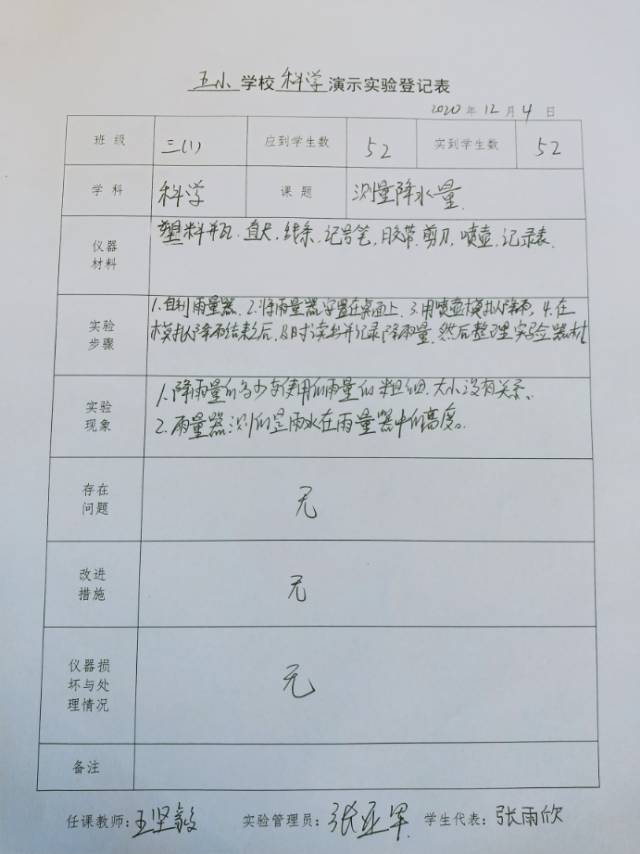 五小学校科学演示实验登记表
2020年12月4日
班级 三(1) 应到学生数 52 实到学生数 52
学科 科学 课题 测量降水量
仪器材料 塑料瓶、直尺、线条、记号笔、胶带、剪刀、喷壶、记录表
实验步骤 1.自制雨量器、2.将雨量器字置在桌面上、3.用喷壶模拟降雨、4.在
模拟降雨结束之后,及时读出并记录降雨量,然后整理实验器材
实验现象 1.降雨量的多少与使用的雨量的粗细、大小没有关系。
2.雨量器测的是雨水在雨量器中的高度。
存在问题 无
改进措施 无
仪器损坏与处理情况 无
备注
任课教师:王坚毅 实验管理员:张亚军 学生代表:张雨欣